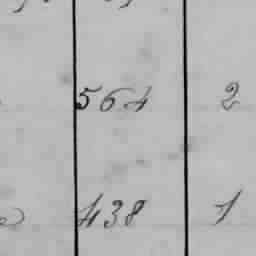 564 2
438 1